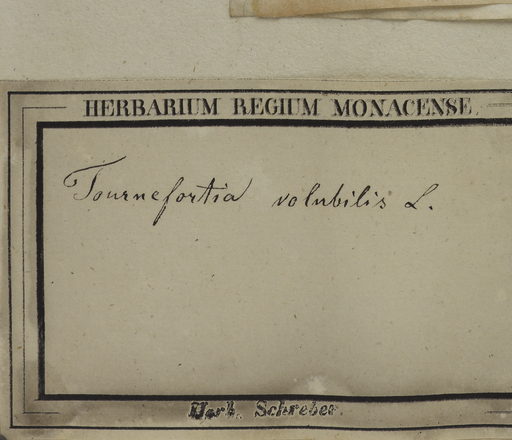 HERBARIUM REGIUM MONACENSE
Tournefortia volubilis L.
Herb. Schreber.